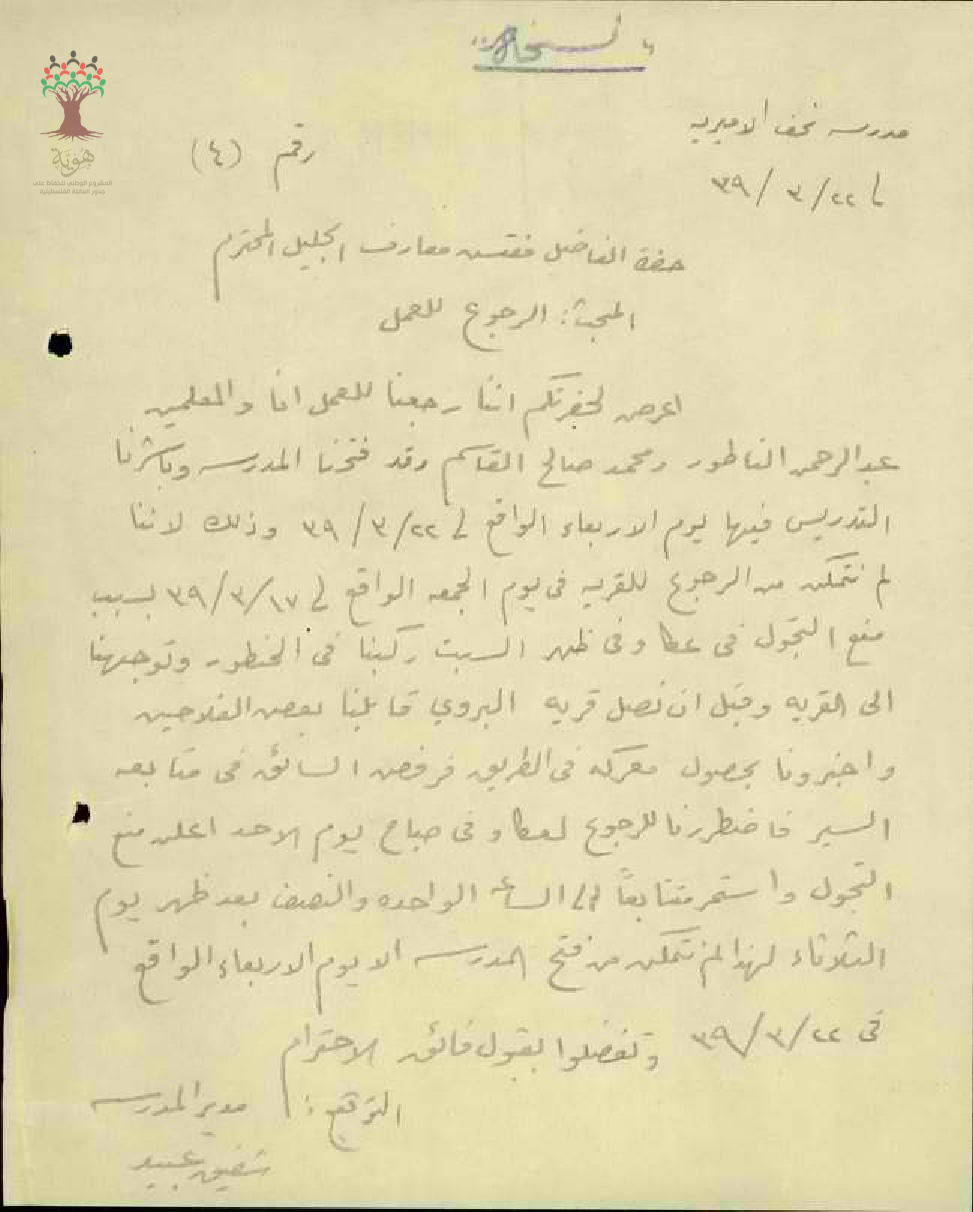 "نسخة"
مدرسه نحف الاميريه
رقم (٤)
٢٢/٣/٣٩
هوية
المشروع الوطني للحفاظ على
جذور العائلة الفلسطينية
حضرة الفاضل مفتش معارف الجليل المحترم
المبحث: الرجوع للعمل
اعرض لحضرتكم اننا رجعنا للعمل انا والمعلمين
عبدالرحمن الناطور ومحمد صالح القاسم وقد فتحنا المدرسه وباشرنا
التدريس فيها يوم الاربعاء الواقع في ٢٢/٣/٣٩ وذلك لاننا
لم نتمكن من الرجوع للقريه في يوم الجمعه الواقع في ١٧/٣/٣٩ بسبب
منع التجول في عكا وفي ظهر السبت ركبنا في الحنطور وتوجهنا
الى القريه وقبل ان نصل قريه البروي قابلنا بعض الفلاحين
واخبرونا بحصول معركه في الطريق فرفض السائق في متابعه
السير فاضطررنا للرجوع لعكا وفي صباح يوم الاحد اعلن منع
التجول واستمر متتابعاً الى الساعه الواحده والنصف بعد ظهر يوم
الثلاثاء لهذا لم نتمكن من فتح المدرسه الا يوم الاربعاء الواقع
في ٢٢/٣/٣٩ وتفضلوا بقبول فائق الاحترام
التوقيع: مدير المدرسه
شفيق عبيد